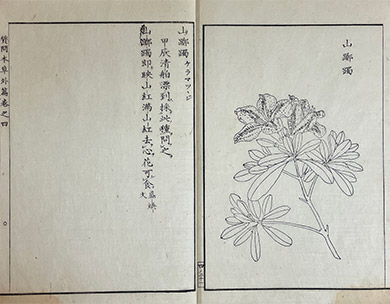 山躑躅
山躑躅 ケラマツヽジ
甲辰清舶漂到採此種問之
山躑躅即映山紅滿山紅去心花可食
質問本草外篇卷之四